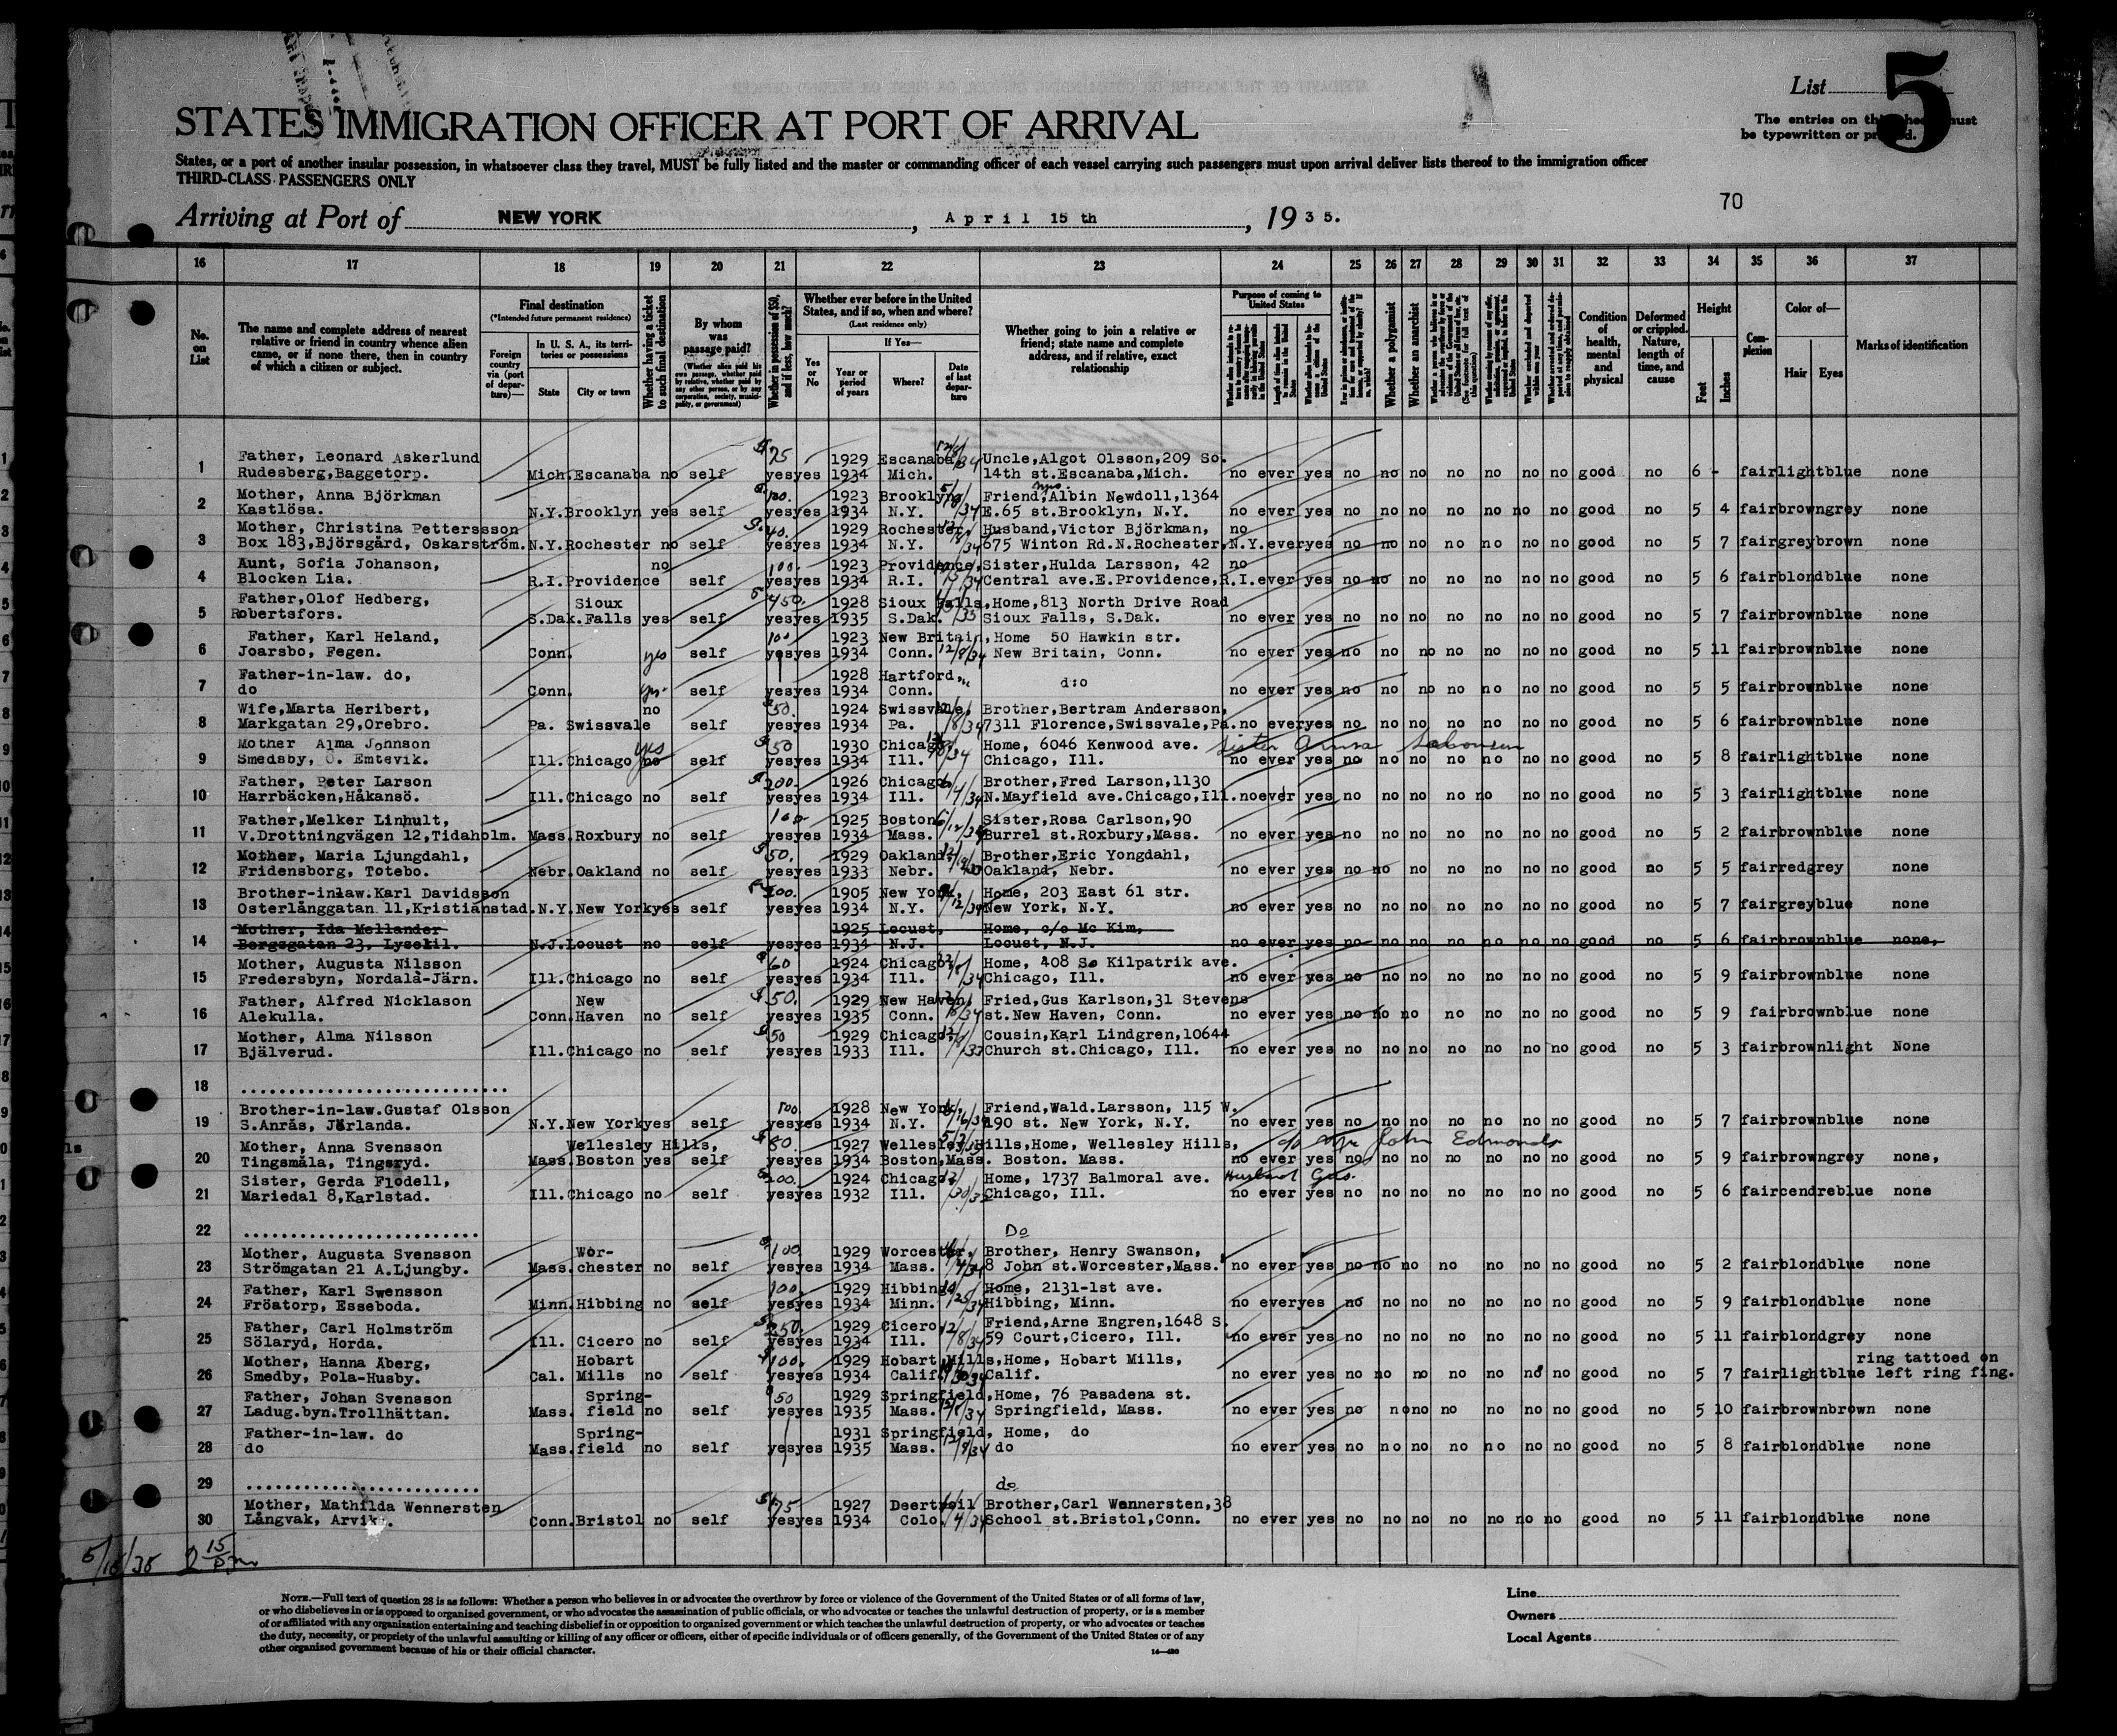 List 5
The entries on this sheet must
be typewritten or printed.
STATES IMMIGRATION OFFICER AT PORT OF ARRIVAL
States, or a port of another insular possession, in whatsoever class they travel, MUST be fully listed and the master or commanding officer of each vessel carrying such passengers must upon arrival deliver lists thereof to the immigration officer
THIRD-CLASS PASSENGERS ONLY
70
Arriving at Port of NEW YORK, April 15th, 1935.
16 17 18 19 20 21 22 23 24 25 26 27 28 29 30 31 32 33 34 35 36 37
No. on List
The name and complete address of nearest relative or friend in country whence alien came, or if none there, then in country of which a citizen or subject.
Final destination
(*Intended future permanent residence)
Foreign country via (port of departure)—
In U. S. A., its territories or possessions
State
City or town
Whether having a ticket to such final destination
By whom was passage paid?
(Whether alien paid his own passage, whether paid by relative, whether paid by any other person, or by any corporation, society, municipality, or government)
Whether in possession of $50, and if less, how much?
Whether ever before in the United States, and if so, when and where?
(Last residence only)
Yes or No
If Yes—
Year or period of years
Where?
Date of last departure
Whether going to join a relative or friend; state name and complete address, and if relative, exact relationship
Purpose of coming to United States
Whether a polygamist
Whether an anarchist
Condition of health, mental and physical
Deformed or crippled. Nature, length of time, and cause
Height
Feet
Inches
Complexion
Color of—
Hair
Eyes
Marks of identification
1 Father, Leonard Askerlund $75 1929 Escanaba Uncle,Algot Olsson,209 So.
Rudesberg,Baggetorp. Mich.Escanaba no self yes yes 1934 Mich. 14th st.Escanaba,Mich. no ever yes no no no no no no no good no 6 - fair light blue none
2 Mother, Anna Björkman 100. 1923 Brooklyn Friend, Mrs. Albin Newdoll,1364
Kastlösa. N.Y.Brooklyn yes self yes yes 1934 N.Y. E.65 st.Brooklyn, N.Y. no ever yes no no no no no no no good no 5 4 fair brown grey none
3 Mother, Christina Petterssson 40. 1929 Rochester, Husband,Victor Björkman, no
Box 183,Björsgård, Oskarström. N.Y.Rochester no self yes yes 1934 N.Y. 675 Winton Rd.N.Rochester,N.Y. ever yes no no no no no no no good no 5 7 fair grey brown none
4 Aunt, Sofia Johanson, no 100. 1923 Providence, Sister,Hulda Larsson, 42 no
Blocken Lia. R.I.Providence self yes yes 1934 R.I. Central ave.E.Providence,R.I. ever yes no no no no no no no good no 5 6 fair blond blue none
5 Father,Olof Hedberg, Sioux 450. 1928 Sioux Falls, Home,813 North Drive Road
Robertsfors. S.Dak.Falls yes self yes yes 1935 S.Dak. Sioux Falls, S.Dak. no ever yes no no no no no no no good no 5 7 fair brown blue none
6 Father, Karl Heland, 100 1923 New Britain, Home 50 Hawkin str.
Joarsbo, Fegen. Conn. yes self yes yes 1934 Conn. 12/8/34 New Britain, Conn. no ever yes no no no no no no no good no 5 11 fair brown blue none
7 Father-in-law. do, 1928 Hartford, d:o
do Conn. yes self yes yes 1934 Conn. no ever yes no no no no no no no good no 5 5 fair brown blue none
8 Wife,Marta Heribert, no 50. 1924 Swissvale, Brother,Bertram Andersson,
Markgatan 29,Orebro. Pa. Swissvale self yes yes 1934 Pa. 7311 Florence,Swissvale,Pa. no ever yes no no no no no no no good no 5 6 fair brown blue none
9 Mother Alma Johnson yes $50 1930 Chicago Home, 6046 Kenwood ave. Sister Anna
Smedsby, O. Emtevik. Ill.Chicago no self yes yes 1934 Ill. Chicago, Ill. no ever yes no no no no no no no good no 5 8 fair light blue none
10 Father, Peter Larson $200. 1926 Chicago Brother,Fred Larson,1130
Harrbäcken,Håkansö. Ill.Chicago no self yes yes 1934 Ill. N.Mayfield ave.Chicago,Ill. no ever yes no no no no no no no good no 5 3 fair light blue none
11 Father,Melker Linhult, 100 1925 Boston Sister,Rosa Carlson,90
V.Drottningvägen 12,Tidaholm. Mass.Roxbury no self yes yes 1934 Mass. Burrel st.Roxbury,Mass. no ever yes no no no no no no no good no 5 2 fair brown blue none
12 Mother, Maria Ljungdahl, $50. 1929 Oakland Brother,Eric Yongdahl,
Fridensborg, Totebo. Nebr.Oakland no self yes yes 1933 Nebr. Oakland, Nebr. no ever yes no no no no no no no good no 5 5 fair red grey none
13 Brother-inlaw.Karl Davidsson 1905 New York, Home, 203 East 61 str.
Osterlånggatan 11,Kristianstad. N.Y.New York yes self yes yes 1934 N.Y. New York, N.Y. no ever yes no no no no no no no good no 5 7 fair grey blue none
14 Mother, Ida Mellander 1925 Locust, Home, c/o Mc Kim,
Bergsgatan 23, Lysekil. N.J.Locust no self yes yes 1934 N.J. Locust, N.J. no ever yes no no no no no no no good no 5 6 fair brown blue none,
15 Mother, Augusta Nilsson 60 1924 Chicago Home, 408 So Kilpatrik ave.
Fredersbyn, Nordalå-Järn. Ill.Chicago no self yes yes 1934 Ill. Chicago, Ill. no ever yes no no no no no no no good no 5 9 fair brown blue none
16 Father, Alfred Nicklason New $50. 1929 New Haven, Fried,Gus Karlson,31 Stevens
Alekulla. Conn.Haven no self yes yes 1935 Conn. st.New Haven, Conn. no ever yes no no no no no no no good no 5 9 fair brown blue none
17 Mother, Alma Nilsson $50 1929 Chicago Cousin,Karl Lindgren,10644
Bjälverud. Ill.Chicago no self yes yes 1933 Ill. Church st.Chicago, Ill. no ever yes no no no no no no no good no 5 3 fair brown light None
18 ............................
19 Brother-in-law.Gustaf Olsson 100 1928 New York, Friend,Wald.Larsson, 115 W.
S.Anrås, Jörlanda. N.Y.New York yes self yes yes 1934 N.Y. 190 st. New York, N.Y. no ever yes no no no no no no no good no 5 7 fair brown blue none
20 Mother, Anna Svensson Wellesley Hills, $80. 1927 Wellesley Hills,Home, Wellesley Hills, c/o Mr John Edmonds
Tingsmåla, Tingsryd. Mass.Boston yes self yes yes 1934 Boston,Mass. Boston. Mass. no ever yes no no no no no no no good no 5 9 fair brown grey none,
21 Sister, Gerda Flodell, 100. 1924 Chicago Home, 1737 Balmoral ave. Husband Gus.
Mariedal 8,Karlstad. Ill.Chicago no self yes yes 1932 Ill. Chicago, Ill. no ever yes no no no no no no no good no 5 6 fair cendre blue none
22 .......................... Do
23 Mother, Augusta Svensson Wor- 100 1929 Worcester, Brother, Henry Swanson,
Strömgatan 21 A.Ljungby. Mass.chester no self yes yes 1934 Mass. 8 John st.Worcester,Mass. no ever yes no no no no no no no good no 5 2 fair blond blue none
24 Father, Karl Swensson 100. 1929 Hibbing Home, 2131-1st ave.
Fröatorp, Esseboda. Minn.Hibbing no self yes yes 1934 Minn. Hibbing, Minn. no ever yes no no no no no no no good no 5 9 fair blond blue none
25 Father, Carl Holmström 250. 1929 Cicero Friend,Arne Engren,1648 S.
Sölaryd, Horda. Ill. Cicero no self yes yes 1934 Ill. 12/8/34 59 Court,Cicero, Ill. no ever yes no no no no no no no good no 5 11 fair blond grey none
26 Mother, Hanna Åberg, Hobart $100. 1929 Hobart Mills,Home, Hobart Mills, ring tattoed on
Smedby, Pola-Husby. Cal. Mills no self yes yes 1934 Calif. Calif. no ever yes no no no no no no no good no 5 7 fair light blue left ring fing.
27 Father, Johan Svensson Spring- 50 1929 Springfield,Home, 76 Pasadena st.
Ladug.byn.Trollhättan. Mass. field no self yes yes 1935 Mass. Springfield, Mass. no ever yes no no no no no no no good no 5 10 fair brown brown none
28 Father-in-law. do Spring- 1931 Springfield, Home, do
do Mass.field no self yes yes 1935 Mass. 12/8/34 do no ever yes no no no no no no no good no 5 8 fair blond blue none
29 .......................... do
30 Mother, Mathilda Wennersten $75 1927 Deertrail Brother,Carl Wennersten,38
Långvak, Arvika. Conn.Bristol no self yes yes 1934 Colo. School st.Bristol,Conn. no ever yes no no no no no no no good no 5 11 fair blond blue none
NOTE.—Full text of question 28 is as follows: Whether a person who believes in or advocates the overthrow by force or violence of the Government of the United States or of all forms of law,
or who disbelieves in or is opposed to organized government, or who advocates the assassination of public officials, or who advocates or teaches the unlawful destruction of property, or is a member
of or affiliated with any organization entertaining and teaching disbelief in or opposition to organized government or which teaches the unlawful destruction of property, or who advocates or teaches
the duty, necessity, or propriety of the unlawful assaulting or killing of any officer or officers, either of specific individuals or of officers generally, of the Government of the United States or of any
other organized government because of his or their official character.
Line
Owners
Local Agents